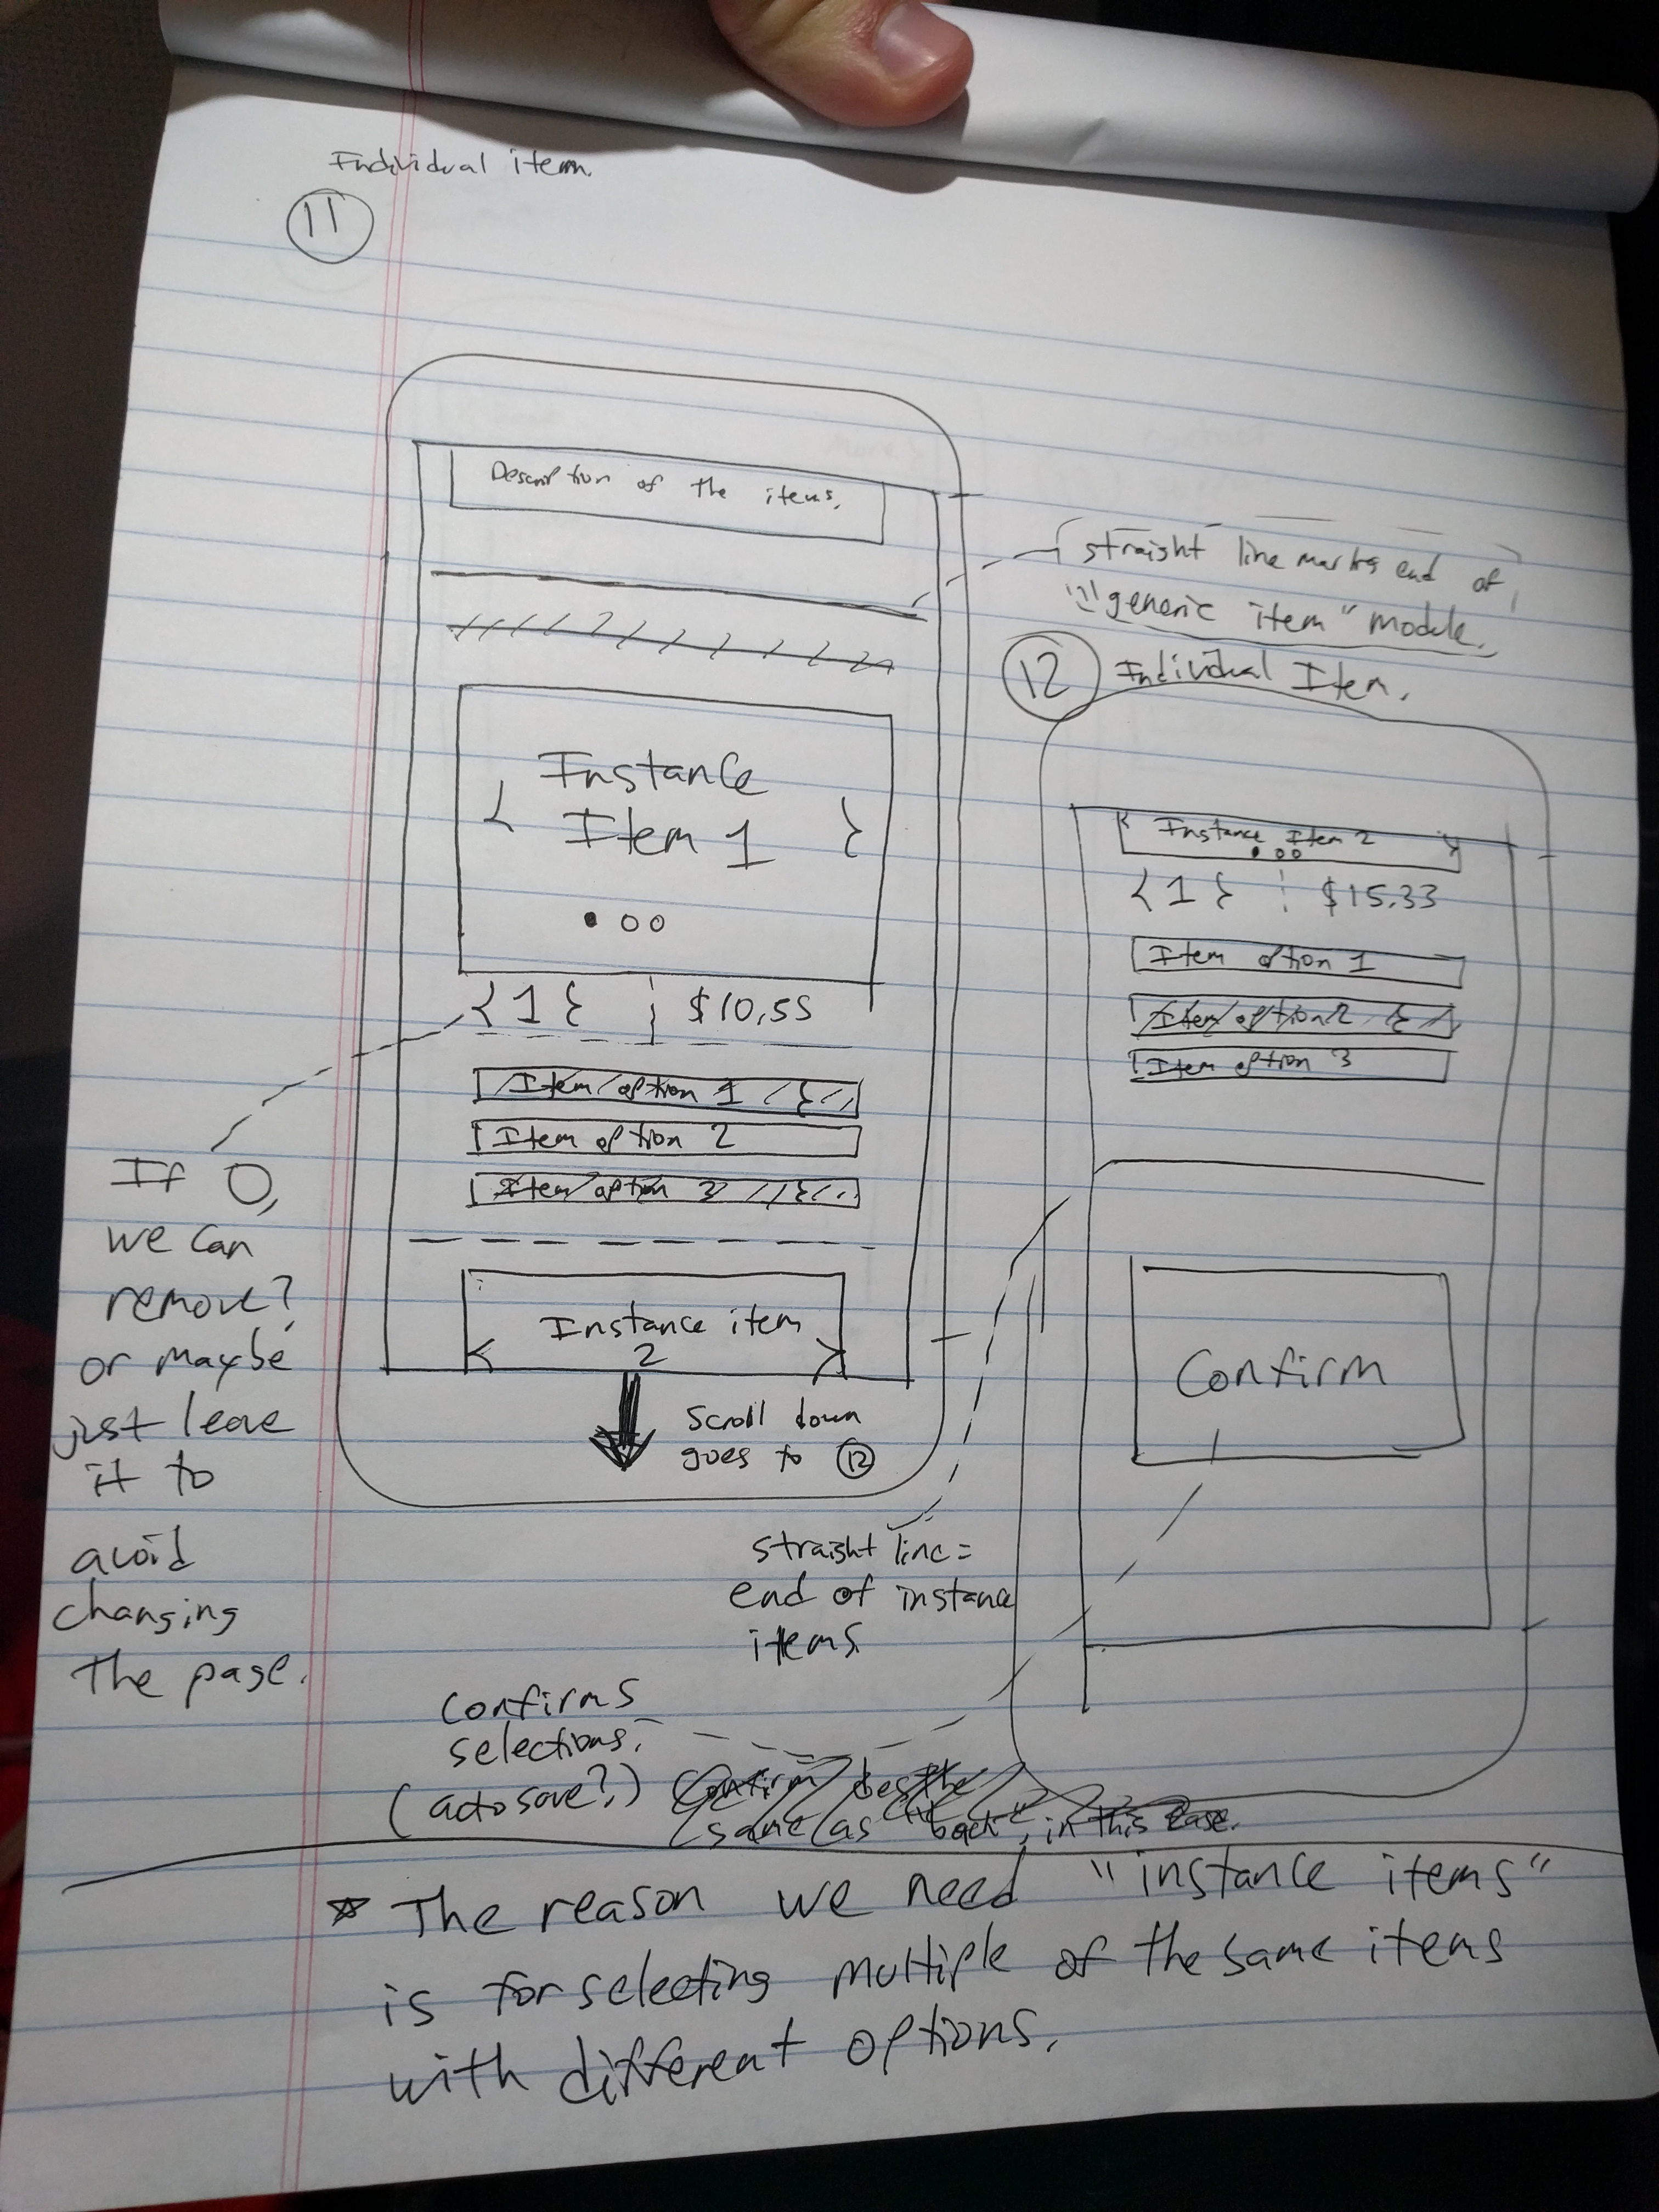 Individual item
11
Description of the items.
straight line marks end of
"generic item" module.
12 Individual Item.
Instance
Item 1
{ 1 } $10.55
Item option 1
Item option 2
Item option 3
Instance item
2
Scroll down
goes to 12
If 0,
we can
remove?
or maybe
just leave
it to
avoid
changing
the page.
Instance Item 2
{ 1 } $15.33
Item option 1
Item option 2
Item option 3
Confirm
straight line =
end of instance
items
Confirms
selections.
(autosave?)
Confirm does the
same as "back", in this case.
* The reason we need "instance items"
is for selecting multiple of the same items
with different options.